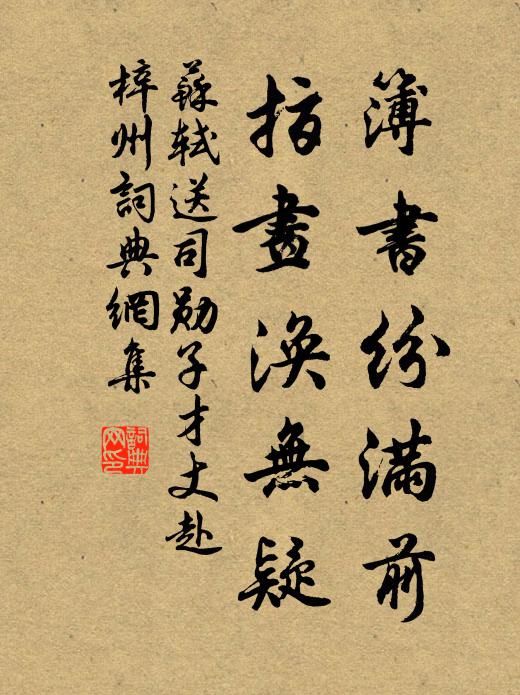 簿書紛滿前
指畫渙無疑
蘇軾送司勛子才丈赴
梓州詞典網集
詞典網印